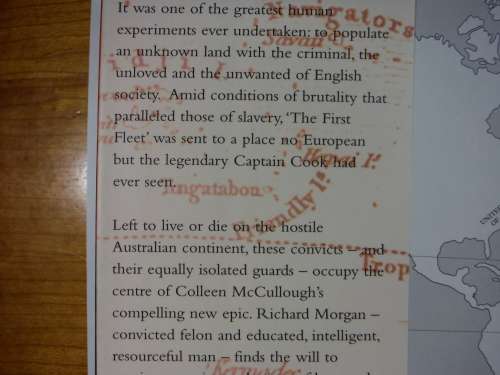 It was one of the greatest human
experiments ever undertaken: to populate
an unknown land with the criminal, the
unloved and the unwanted of English
society. Amid conditions of brutality that
paralleled those of slavery, 'The First
Fleet' was sent to a place no European
but the legendary Captain Cook had
ever seen.
Left to live or die on the hostile
Australian continent, these convicts – and
their equally isolated guards – occupy the
centre of Colleen McCullough's
compelling new epic. Richard Morgan –
convicted felon and educated, intelligent,
resourceful man – finds the will to
Navigators
Savau I.
Hapai I!
Angatabou
Friendly I!
Trop
Kermadec
UNITED